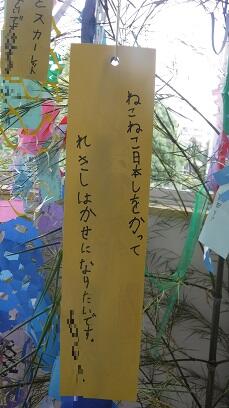 ねこねこ日本しをかって
れきしはかせになりたいです。
とスカーレット